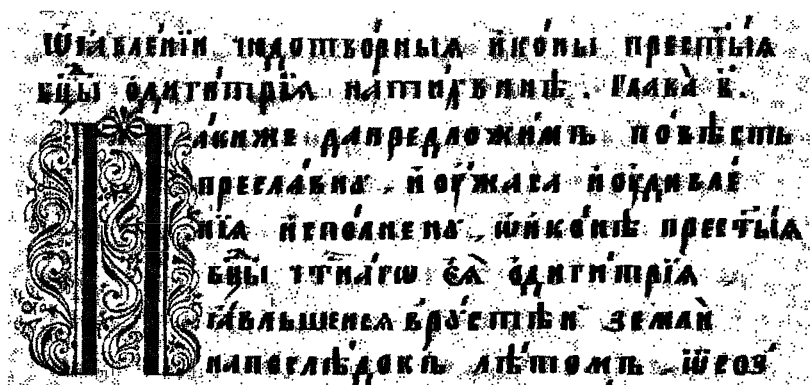 Ѿꙗвле́нїи чюдотво́рныѧ и҆ко́ны прест҃ы́ѧ
бц҃ы ѻ҆диги́трїѧ натиѳви́нѣ. Глава̀ в҃.
Па́киже дапредложи́мъ по́вѣсть
пресла́внꙋ. и҆ оу҆́жаса и҆ оу҆дивле́
нїѧ и҆спо́лненꙋ. ѡ҆и҆ко́нѣ прест҃ы́ѧ
бц҃ы чт҃на́гѡ є҆ѧ̀ ѻ҆диги́трїѧ.
ꙗ҆́вльшеисѧ вро́ꙋ́стѣи землѝ
напослѣ́докъ лѣ́томъ.